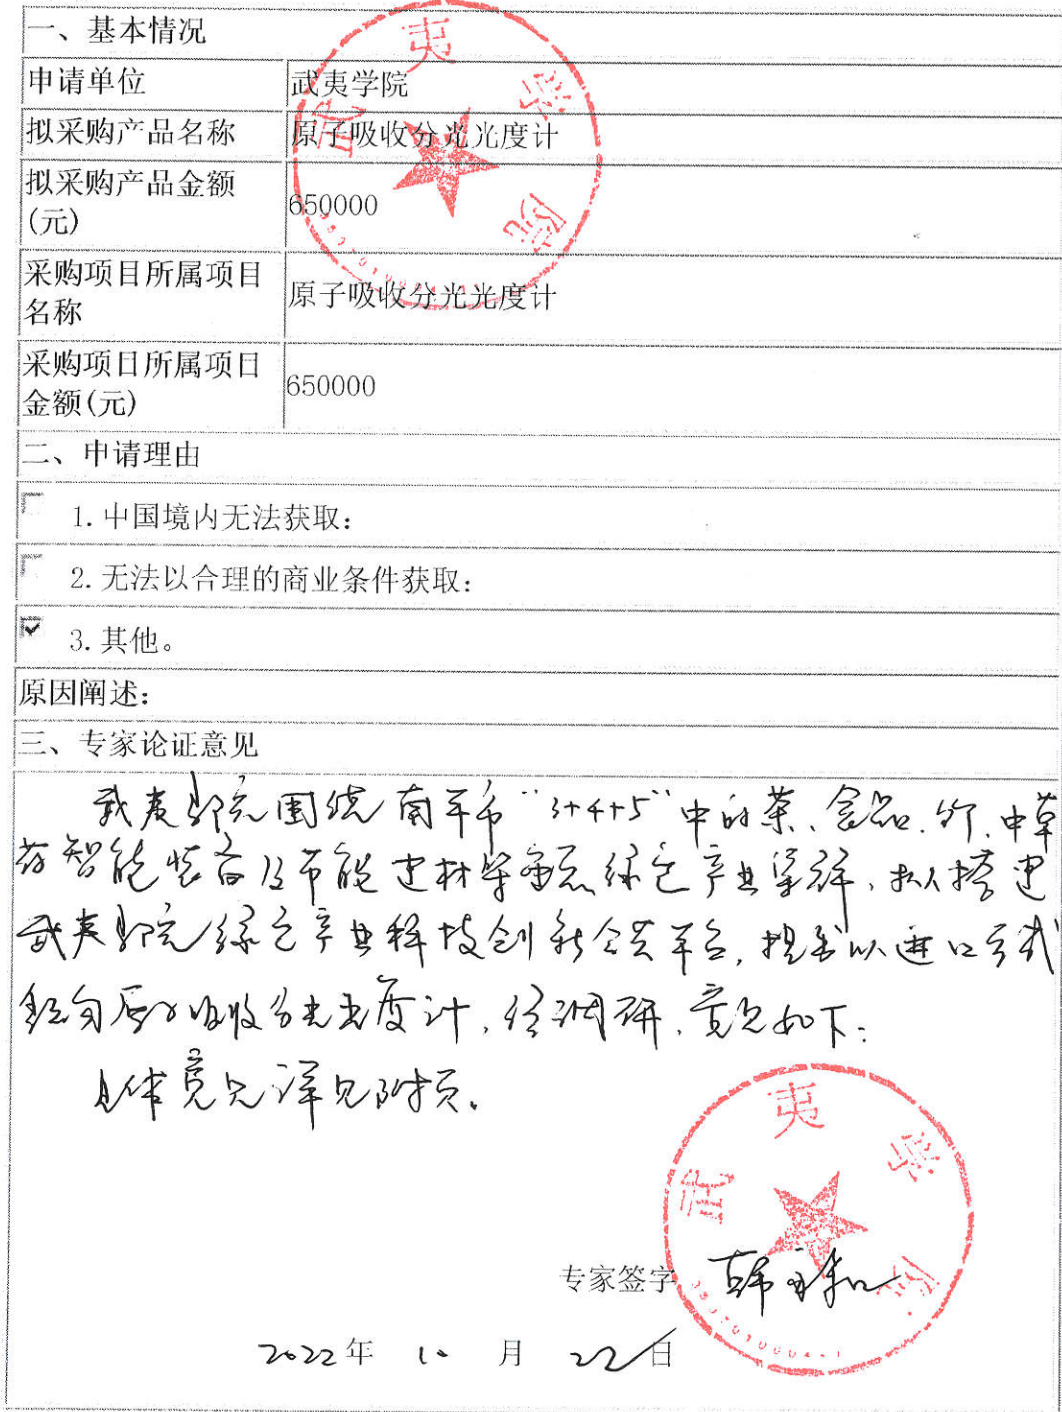 一、基本情况
申请单位 武夷学院
拟采购产品名称 原子吸收分光光度计
拟采购产品金额
(元) 650000
采购项目所属项目
名称 原子吸收分光光度计
采购项目所属项目
金额(元) 650000
二、申请理由
1.中国境内无法获取:
2.无法以合理的商业条件获取:
3.其他。
原因阐述:
三、专家论证意见
武夷学院围绕南平市“3+4+5”中的茶、食品、竹、中草
药智能装备及节能建材等重点绿色产业集群,拟搭建
武夷学院绿色产业科技创新公共平台,提出以进口方式
采购原子吸收分光光度计,经调研,意见如下:
具体意见详见附页。
专家签字
2022年 10 月 22日
武夷学院
武夷学院